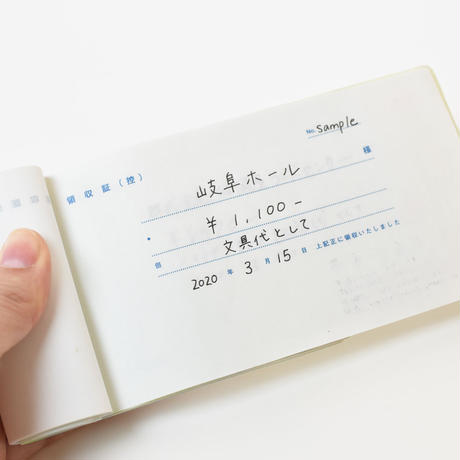 No. sample
領収証（控）
岐阜ホール 様
¥ 1,100-
但 文具代として
2020 年 3 月 15 日 上記正に領収いたしました